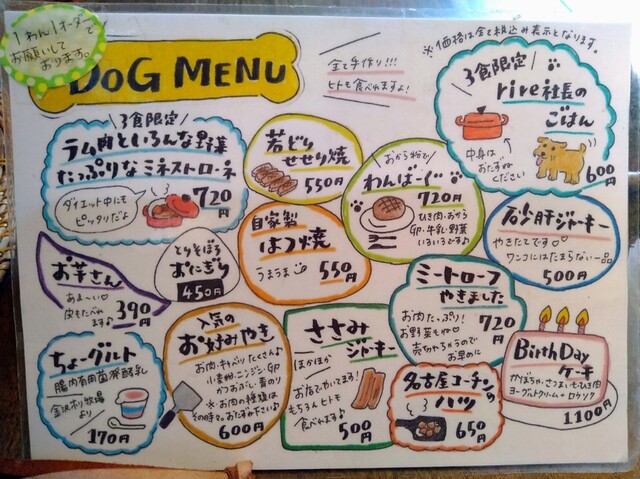 1わん1オーダーで
お願いして
おります。
DOG MENU
全て手作り!!!
ヒトも食べれますよ!
※価格は全て税込み表示となります。
3食限定
ラム肉といろんな野菜
たっぷりなミネストローネ
ダイエット中にも
ピッタリだよ
720円
若どり
せせり焼
550円
おから粉で
わんばーぐ
720円
ひき肉・おから
GP・牛乳・野菜
いろいろです♪
3食限定
rire社長の
ごはん
中身は
おたずね
ください
600円
お芋さん
あま〜い♡
皮もたべれ
ます♪
390円
とりそぼろ
おにぎり
450円
自家製
はつ焼
うまうま
550円
砂肝ジャーキー
やきたてです♡
ワンコにはたまらない一品
500円
ミートローフ
やきました
お肉たっぷり!
お野菜もね♡
売切れちゃうので
お早めに
720円
ちょーグルト
腸内有用菌発酵乳
金沢ホリ牧場
より
170円
人気の
お好みやき
お肉・キャベツたくさん♪
小麦粉・ニンジン・GP
かつおぶし・青のり
※お肉の種類は
その時々おたずね下さい♪
600円
ささみ
ジャーキー
ほかほか
お店でたいてます!
もちろんヒトも
食べれます♪
500円
名古屋コーチンの
ハツ
650円
BirthDay
ケーキ
かぼちゃ、さつまいも、ひき肉
ヨーグルトクリーム+ロウソク
1100円